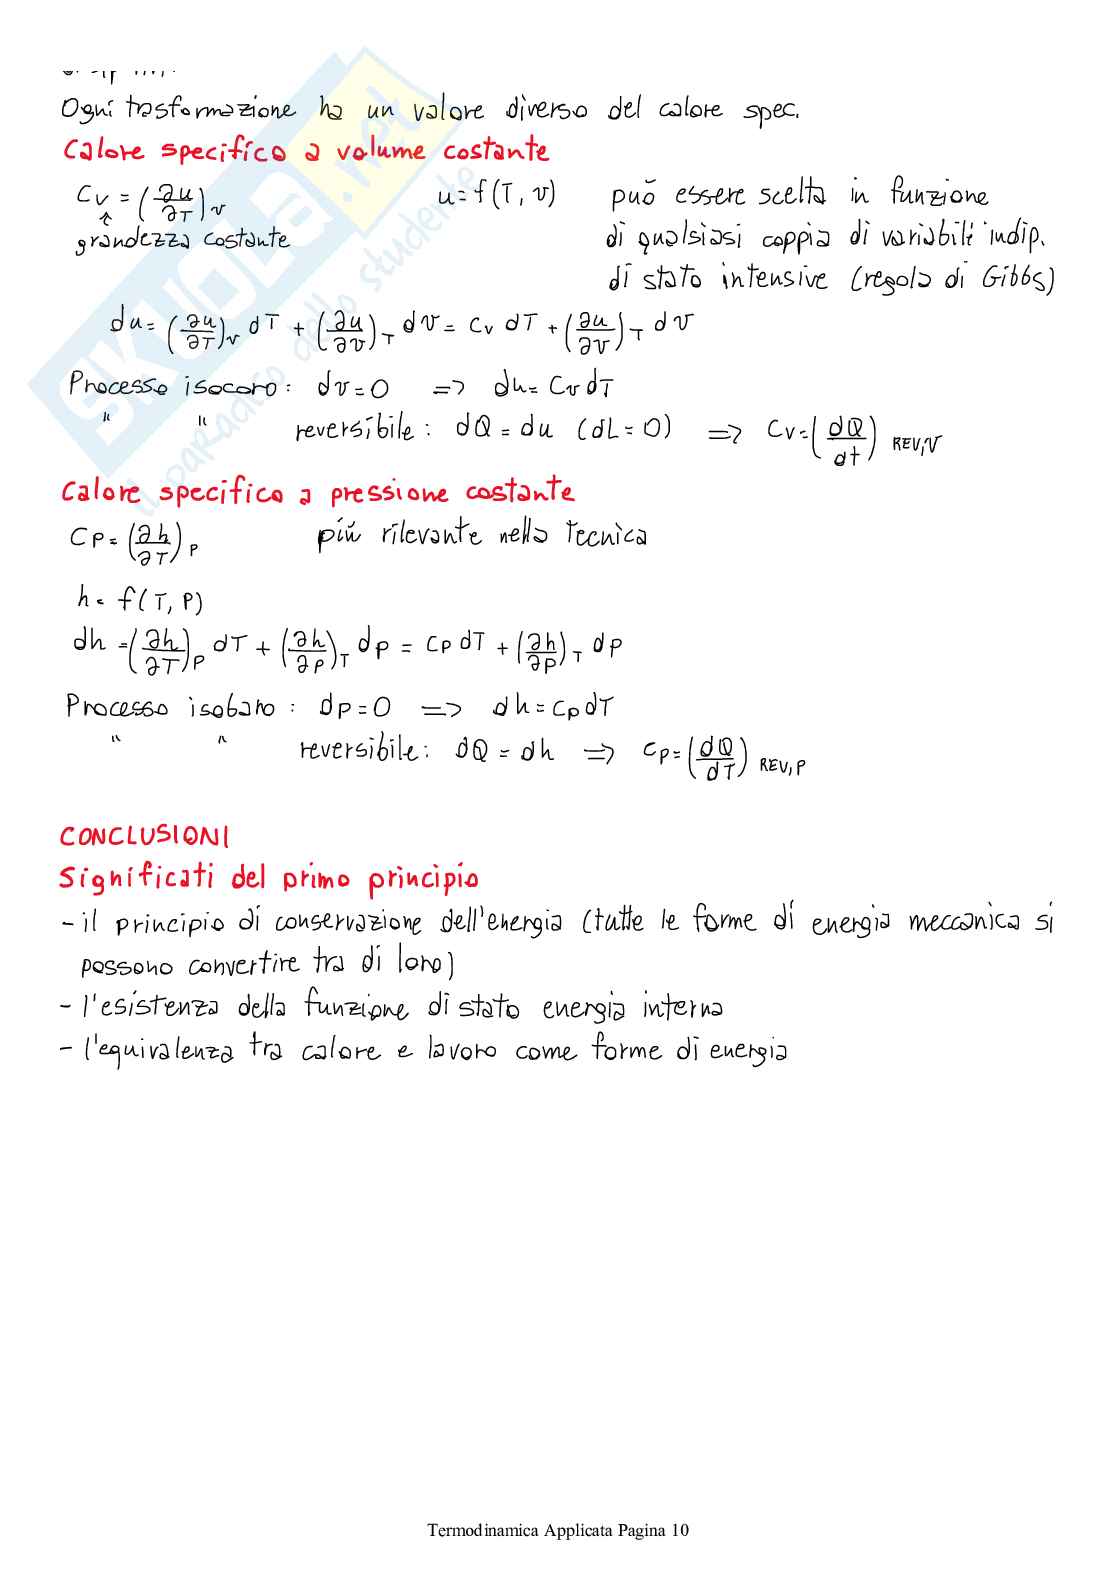 Ogni trasformazione ha un valore diverso del calore spec.
Calore specifico a volume costante
Cv = (∂u/∂T)v u = f(T, v) può essere scelta in funzione
↑
grandezza costante di qualsiasi coppia di variabili indip.
di stato intensive (regola di Gibbs)
du = (∂u/∂T)v dT + (∂u/∂v)T dv = Cv dT + (∂u/∂v)T dv
Processo isocoro: dv = 0 => du = Cv dT
" " reversibile: dQ = du (dL = 0) => Cv = (dQ/dt) REV,V
Calore specifico a pressione costante
Cp = (∂h/∂T)P più rilevante nella tecnica
h = f(T, P)
dh = (∂h/∂T)P dT + (∂h/∂P)T dp = Cp dT + (∂h/∂P)T dp
Processo isobaro: dp = 0 => dh = Cp dT
" " reversibile: dQ = dh => Cp = (dQ/dT) REV,P
CONCLUSIONI
Significati del primo principio
- il principio di conservazione dell'energia (tutte le forme di energia meccanica si
possono convertire tra di loro)
- l'esistenza della funzione di stato energia interna
- l'equivalenza tra calore e lavoro come forme di energia
SKUOLA.net
il paradiso dello studente
Termodinamica Applicata Pagina 10